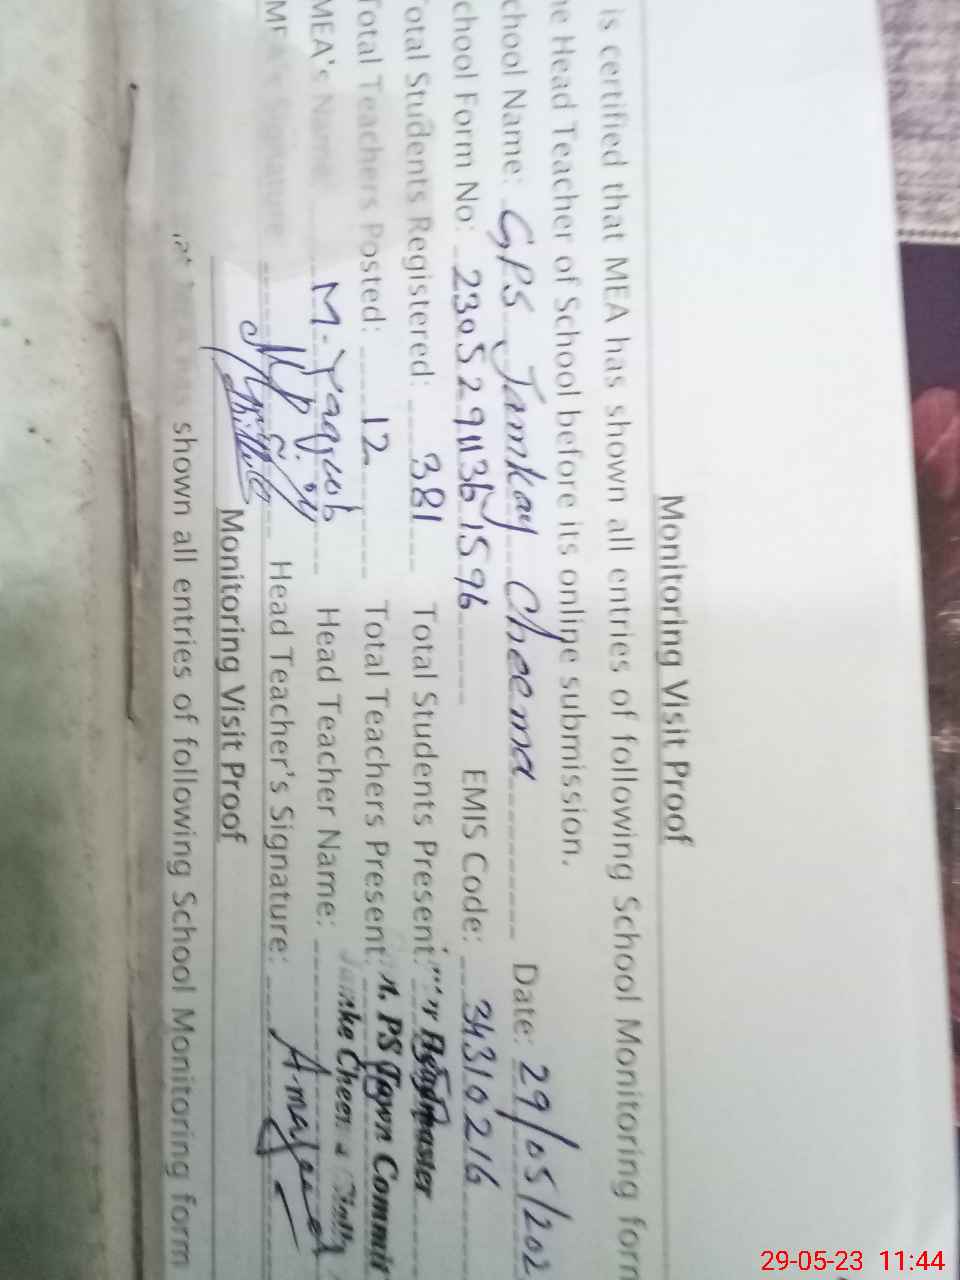 Monitoring Visit Proof
is certified that MEA has shown all entries of following School Monitoring form
he Head Teacher of School before its online submission.
chool Name: GPS Jamkay Cheema Date: 29/05/202
chool Form No: EMIS Code: 34310216
otal Students Registered: 381 Total Students Present:
Total Teachers Posted: 12 Total Teachers Present:
MEA's Name: M. Yaqoob Head Teacher Name:
MEA's Signature Head Teacher's Signature: A-majeed
Headmaster
PS Town Commit
Monitoring Visit Proof
shown all entries of following School Monitoring form
29-05-23 11:44